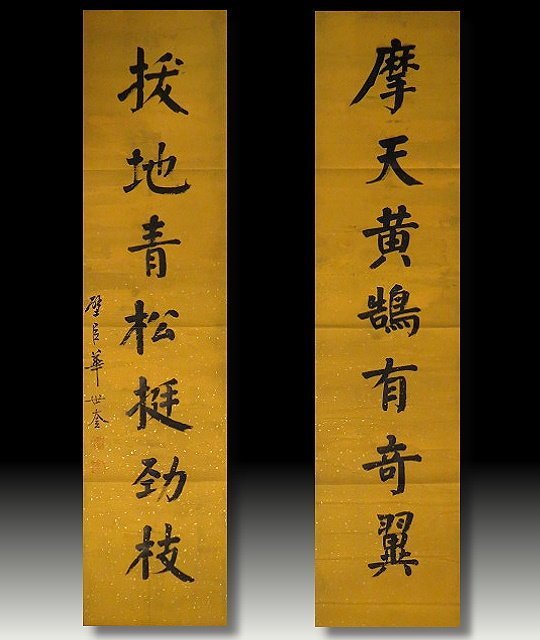 摩天黄鵠有奇翼
拔地青松挺劲枝
璧臣華世奎